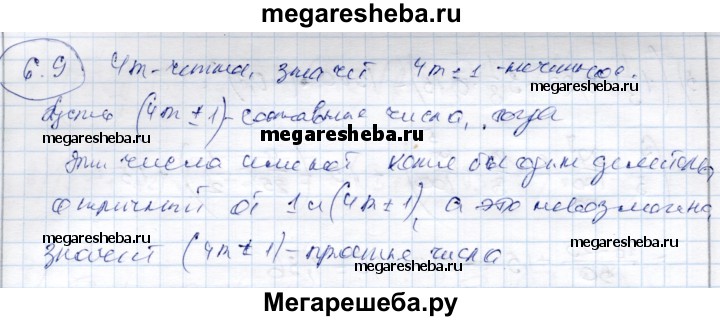 megaresheba.ru
6.9 4m - четна, значит 4m ± 1 - нечетное.
Пусть (4m ± 1) - составные числа, тогда
megaresheba.ru
эти числа имеют хотя бы один делитель,
отличный от 1 и (4m ± 1), а это невозможно,
megaresheba.ru
значит (4m ± 1) - простые числа
megaresheba.ru
megaresheba.ru
Мегарешеба.ру